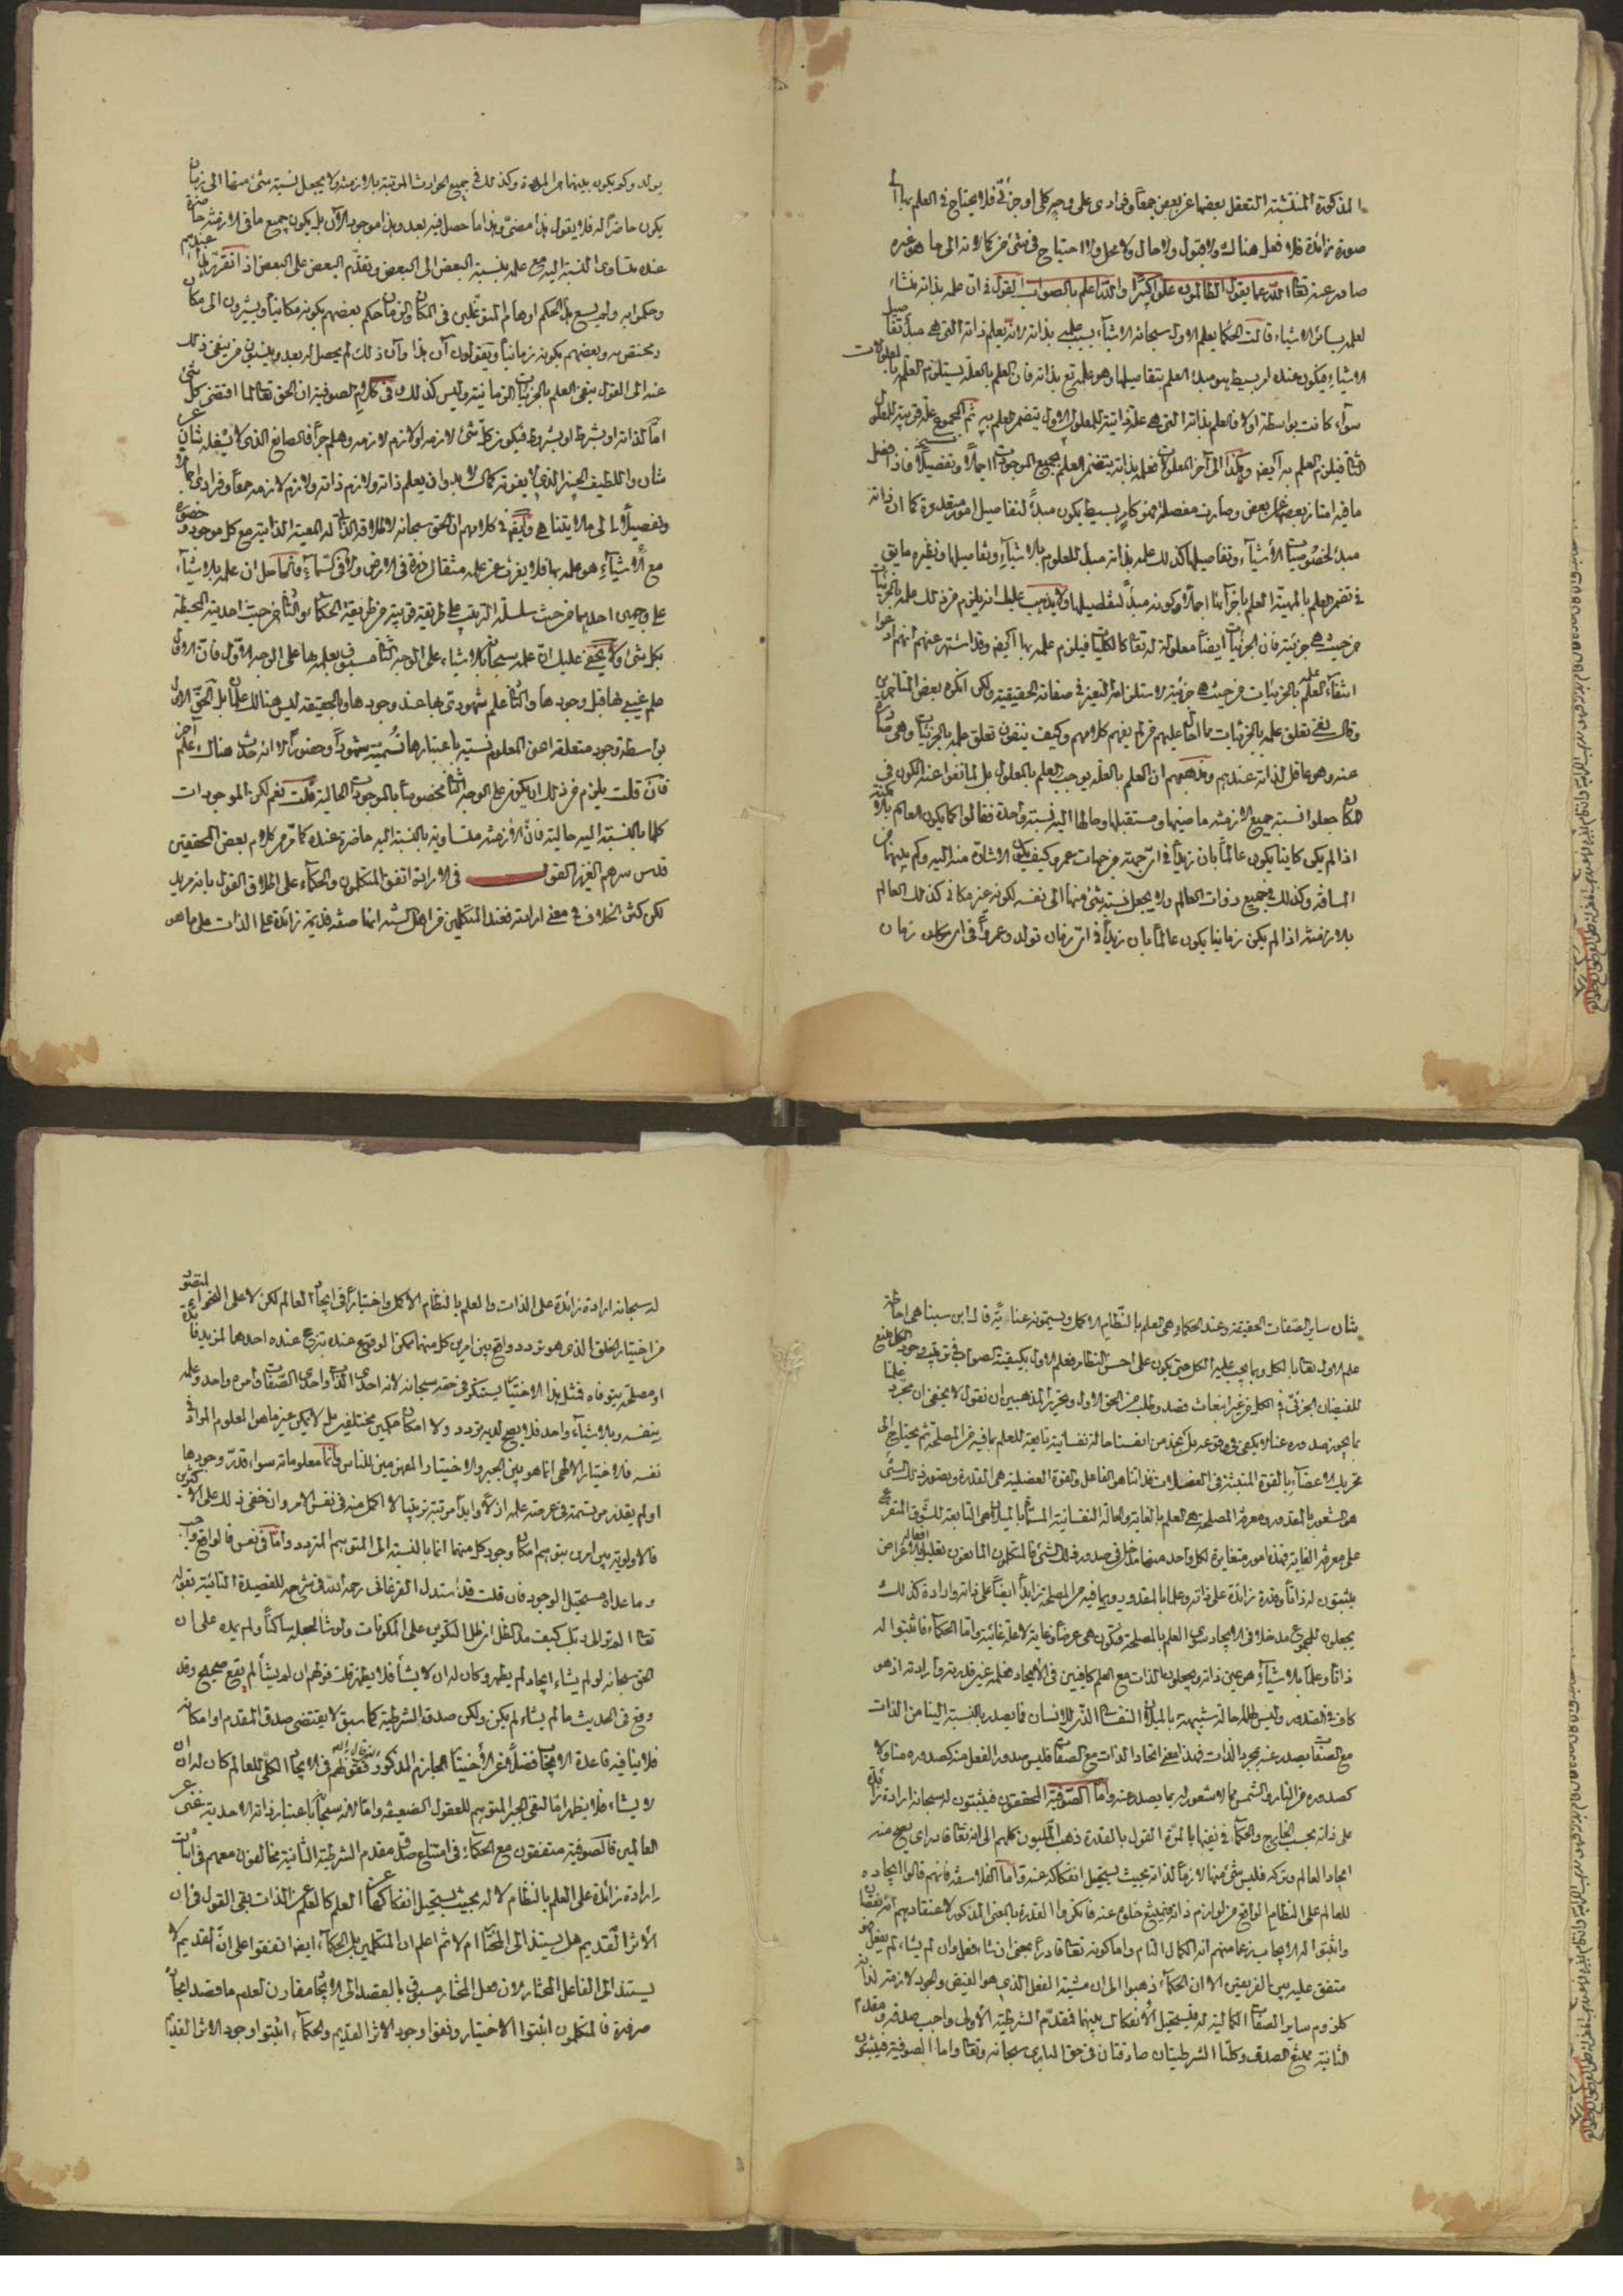 المذكورة المنتشئة التعقل بعضها عن بعض جمعا وفرادى على وجه كلى او جزئى فلا يحتاج فى العلم بها الى
صورة زائدة فلا فعل هناك ولا قبول ولا حال ولا محل ولا احتياج فى شئ من كمالاته الى ما هو غيره
صادر عنه تعالى الله عما يقول الظالمون علوا كبيرا والله اعلم بالصواب القول فى ان علمه بذاته منشاء
لعلمه بسائر الاشياء قالت الحكما يعلم الاول سبحانه الاشياء بسبب علمه بذاته لانه يعلم ذاته التى هى مبدأ تفاصيل
الاشياء فيكون عنده امر بسيط هو مبدء العلم بتفاصيلها وهو علمه تع بذاته فان العلم بالعلة يستلزم العلم بالمعلولات
سواء كانت بواسطة اولا فالعلم بذاته التى هى علة ذاتية للمعلول الاول يتضمن العلم به ثم المجموع علة قريبة للمعلول
الثانى فيلزم العلم به ايضا وهكذا الى آخر المعلولات فعلمه بذاته يتضمن العلم بجميع الموجودات اجمالا وتفصيلا فاذا فصل
ما فيه امتاز بعضها عن بعض وصارت مفصلة فهو كامر بسيط يكون مبدأ لتفاصيل امور متعددة كما ان ذاته
مبدء لخصوصيات الاشياء وتفاصيلها كذلك علمه بذاته مبدأ للعلوم بالاشياء وتفاصيلها ونظيره ما يق
فى تضمن العلم بالمهية العلم باجزائها اجمالا وكونه مبدأ لتفاصيلها ولا يذهب عليك انه يلزم من ذلك علمه بالجزئيات
من حيث هى جزئية فان الجزئيات ايضا معلولة له تعالى كالكليات فيلزم علمه بها ايضا وقد اشتهر عنهم انهم ادعوا
انتفاء علمه بالجزئيات من حيث هى جزئية لاستلزامه التغير فى صفاته الحقيقية ولكن انكره بعض المتاخرين
وقال نفى تعلق علمه بالجزئيات مما احال عليهم من لم يفهم كلامهم وكيف ينفون تعلق علمه بالجزئيات وهى صادرة
عنه وهو عاقل لذاته عندهم ومذهبهم ان العلم بالعلة يوجب العلم بالمعلول بل لما نفوا عنه الكون فى
المكان جعلوا نسبة جميع الازمنة ماضيها ومستقبلها وحالها اليه نسبة واحدة فقالوا كما يكون العالم بالامكنة
اذا لم يكن مكانيا يكون عالما بان زيدا فى اى جهة من جهات عمرو وكيف يكون الاشارة منه اليه وكم بينهما من
المسافة وكذلك فى جميع ذوات العالم ولا يجعل نسبة شئ منها الى نفسه لكونه غير مكانى كذلك العالم
بالازمنة اذا لم يكن زمانيا يكون عالما بان زيدا فى اى زمان تولد وعمروا فى اى زمان
يولد وكم يكون بينهما من المدة وكذلك فى جميع الحوادث المرتبة بالازمنة ولا يجعل نسبة شئ منها الى زمان
يكون حاضرا له فلا يقول هذا مضى وهذا ما حصل فيه بعد وهذا موجود الآن بل يكون جميع ما فى الازمنة حاضرة
عنده متساوى النسبة اليه مع علمه بنسبة البعض الى البعض وتقدم البعض على البعض اذا تقرر هذا عندهم
وحكموا به ولم يسع هذا الحكم اوهام المتوغلين فى المكان والزمان حكم بعضهم بكونه مكانيا ويشيرون الى مكان
يختص به وبعضهم بكونه زمانيا ويقولون ان هذا وان ذلك لم يحصل له بعد وينسبون من ينفى ذلك
عنه الى القول بنفى العلم بالجزئيات الزمانية وليس كذلك وفى كلام الصوفية ان الحق تعالى لما اقتضى كل شئ
اما لذاته او بشرط او بشروط فيكون كل شئ لازمه او لازم لازمه وهلم جرا فالصانع الذى لا يشغله شان عن
شان واللطيف الخبير الذى لا يفوته كمال لا بد وان يعلم ذاته ولازم ذاته ولازم لازمه جمعا وفرادى اجمالا
وتفصيلا الى ما لا يتناهى وايضا فى كلامهم ان الحق سبحانه لاطلاقه الذاتى له المعية الذاتية مع كل موجود وحضوره
مع الاشياء هو علمه بها فلا يعزب عن علمه مثقال ذرة فى الارض ولا فى السماء والحاصل ان علمه بالاشياء
على وجهين احدهما من حيث سلسلة الترتيب على طريقة قريبة من طريقة الحكماء والثانى من حيث احديته المحيطة
بكل شئ ولا يخفى عليك ان علمه سبحانه بالاشياء على الوجه الثانى مسبوق بعلمه بها على الوجه الاول فان الاول
علم غيبى بها قبل وجودها والثانى علم شهودى بها عند وجودها وبالحقيقة ليس هنالك علمان بل لحق الاول
بواسطة وجود متعلقه اعنى المعلوم نسبة باعتبارها نسميه شهودا وحضورا لا انه حدث هناك علم آخر
فان قلت يلزم من ذلك ان يكون علمه على الوجه الثانى مخصوصا بالموجودات الحالية قلت نعم لكن الموجودات
كلها بالنسبة اليه حالية فان الازمنة متساوية بالنسبة اليه حاضرة عنده كما مر من كلام بعض المحققين
قدس سرهم العزيز القول فى الارادة اتفق المتكلمون والحكماء على اطلاق القول بانه مريد
لكن كثر الخلاف فى معنى ارادته فعند المتكلمين من اهل السنة انها صفة قديمة زائدة على الذات على ما هو
شان ساير الصفات الحقيقية وعند الحكماء هى العلم بالنظام الاكمل ويسمونه عناية قال ابن سينا هى احاطة
علم الاول تعالى بالكل وبما يجب عليه الكل حتى يكون على احسن النظام فعلم الاول بكيفية الصواب فى ترتيب وجود الكل منبع
للفيضان الجزئى فى الكل من غير انبعاث قصد وطلب من الحق الاول وتحرير المذهبين ان نقول لا يخفى ان مجرد علمنا
بما يجوز صدوره عنا لا يكفى فى وقوعه بل نجد من انفسنا حالة نفسانية تابعة للعلم بما فيه من المصلحة ثم نحتاج الى
تحريك الاعضاء بالقوة المنبثة فى العضلات فذاتنا هو الفاعل والقوة العضلية هى القدرة وتصور ذلك الشئ
هو الشعور بالمقدور ومعرفة المصلحة هى العلم بالغاية والحالة النفسانية المسماة بالميلان هى التابعة للشوق المتفرع
على معرفة الغاية فهذه امور متغايرة لكل واحد منها مدخل فى صدور ذلك الشئ فالمتكلمون المانعون تعليل افعاله بالاغراض
يثبتون له ذاتا وقدرة زائدة على ذاته وعلما بالمقدور وبما فيه من المصلحة زايدا ايضا على ذاته وارادة كذلك
ويجعلون للمجموع مدخلا فى الايجاد سوى العلم بالمصلحة فتكون هى غرضا وغاية لا علة غائية واما الحكماء فاثبتوا له
ذاتا وعلما بالاشياء هو عين ذاته ويجعلون الذات مع العلم كافيين فى الايجاد فعلمه عين قدرته وارادته اذ هو
كاف فى الصدور وليس له حالة شبيهة بالميلان النفسانى الذى للانسان فما يصدر بالنسبة الينا من الذات
مع الصفات يصدر عنه بمجرد الذات فهذا معنى اتحاد الذات مع الصفات فليس صدور الفعل منه كصدوره منا ولا
كصدوره من النار والشمس مما لا شعور له بما يصدر عنه واما الصوفية المحققون فيثبتون له سبحانه ارادة زائدة
على ذاته بحسب التعقل لا بحسب الخارج والحكماء فى نفيها بالمرة القول بالقدرة ذهب المليون كلهم الى انه تعالى قادر اى يصح منه
ايجاد العالم وتركه فليس شئ منهما لازما لذاته بحيث يستحيل انفكاكه عنه واما الفلاسفة فانهم قالوا ايجاده
للعالم على النظام الواقع من لوازم ذاته فيمتنع خلوه عنه فانكروا القدرة بالمعنى المذكور لاعتقادهم انه نقصان
واثبتوا له الايجاب زعما منهم انه الكمال التام واما كونه تعالى قادرا بمعنى ان شاء فعل وان لم يشاء لم يفعل فهو
متفق عليه بين الفريقين الا ان الحكماء ذهبوا الى ان مشية الفعل الذى هو الفيض والجود لازمة لذاته
كلزوم ساير الصفات الكمالية له فيستحيل الانفكاك بينهما فمقدم الشرطية الاولى واجب صدقه ومقدم
الثانية ممتنع الصدق وكلتا الشرطيتان صادقتان فى حق البارى سبحانه وتعالى واما الصوفية فيثبتون
له سبحانه ارادة زائدة على الذات والعلم بالنظام الاكمل واختيارا فى ايجاد العالم لكن لا على النحو المتصور
من اختيار الخلق الذى هو تردد واقع بين امرين كل منهما ممكن الوقوع عنده يترجح عنده احدهما لمزيد فائدة
او مصلحة يتوخاه فمثل هذا الاختيار يستنكر فى حقه سبحانه لانه احدى الذات واحدى الصفات وامره واحد وعلمه
بنفسه وبالاشياء واحد فلا يصح لديه تردد ولا امكان حكمين مختلفين بل لا يمكن غير ما هو المعلوم المراد فى
نفسه فالاختيار الالهى انما هو بين الجبر والاختيار المفهومين للناس وانما معلوماته سواء قدر وجودها
او لم يقدر مرتسمة فى عرصة علمه ازلا وابدا مرتبة ترتيبا لا اكمل منه فى نفس الامر وان خفى ذلك على الاكثرين
فالاولوية بين امرين يتوهم امكان وجود كل منهما انما بالنسبة الى المتوهم المتردد واما فى نفس الامر فالواقع واجب
وما عداه مستحيل الوجود فان قلت قد استدل الفرغانى رحمه الله فى شرحه للقصيدة التائية بقوله
تعالى الم تر الى ربك كيف مد الظل اى ظل التكوين على المكونات ولو شاء لجعله ساكنا ولم يمده على ان
الحق سبحانه لو لم يشاء ايجاد العالم لم يظهر وكان له ان لا يشاء فلا يظهر قلت قولهم ان لم يشأ لم يقع صحيح وقد
وقع فى الحديث ما لم يشاء لم يكن ولكن صدق الشرطية كما سبق لا يقتضى صدق المقدم او امكانه
فلا ينافيه قاعدة الايجاب فضلا عن الاختيار الجازم المذكور فقولهم فى الايجاد الكلى للعالم كان له ان
لا يشاء فلا يظهر اما لنفى الجبر المتوهم للعقول الضعيفة واما لانه سبحانه باعتبار ذاته الاحدية غنى عن
العالمين فالصوفية متفقون مع الحكماء فى امتناع صدق مقدم الشرطية الثانية مخالفون معهم فى اثبات
ارادة زائدة على العلم بالنظام لانه بحيث يستحيل انفكاكها عن العلم كالعلم عن الذات بقى القول فى ان
الاثر القديم هل يستند الى المختار ام لا ثم اعلم ان المتكلمين بل الحكماء ايضا اتفقوا على ان القديم لا
يستند الى الفاعل المختار لان فعل المختار مسبوق بالقصد الى الايجاد مقارن لعدم ما قصد ايجاده
ضرورة فالمتكلمون اثبتوا الاختيار ونفوا وجود الاثر القديم والحكماء اثبتوا وجود الاثر القديم